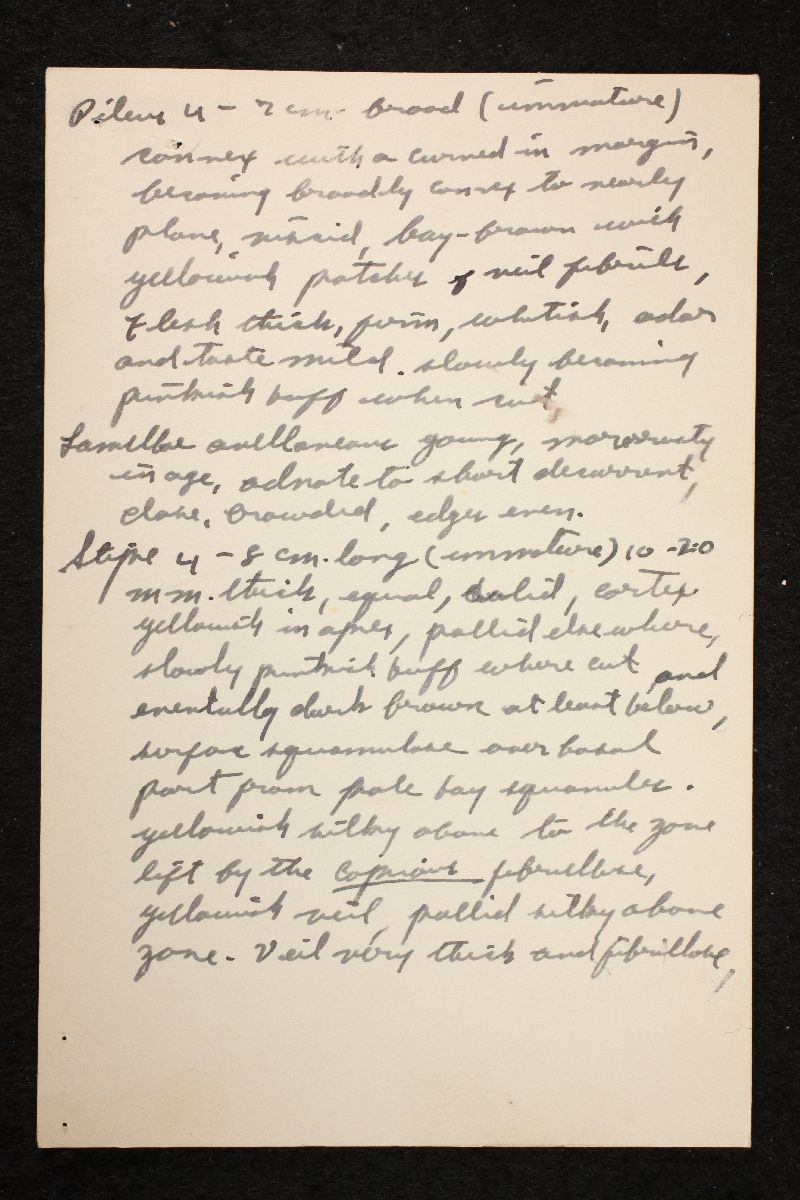 Pileus 4 - 7 cm broad (immature)
convex with a curved in margin,
becoming broadly convex to nearly
plane, viscid, bay-brown with
yellowish patches of veil fibrils,
Flesh thick, firm, whitish, odor
and taste mild. slowly becoming
pinkish buff when cut,
Lamellae avellaneous young, more rusty
in age, adnate to short decurrent,
close, crowded, edges even.
Stipe 4 - 8 cm. long (immature) 10 - 20
mm. thick, equal, solid, cortex
yellowish in apex, pallid elsewhere,
slowly pinkish buff where cut and
eventually dark brown at least below,
surface squamulose over basal
part from pale bay squamules.
yellowish silky above to the zone
left by the copious fibrillose,
yellowish veil, pallid silky above
zone. Veil very thick and fibrillose,